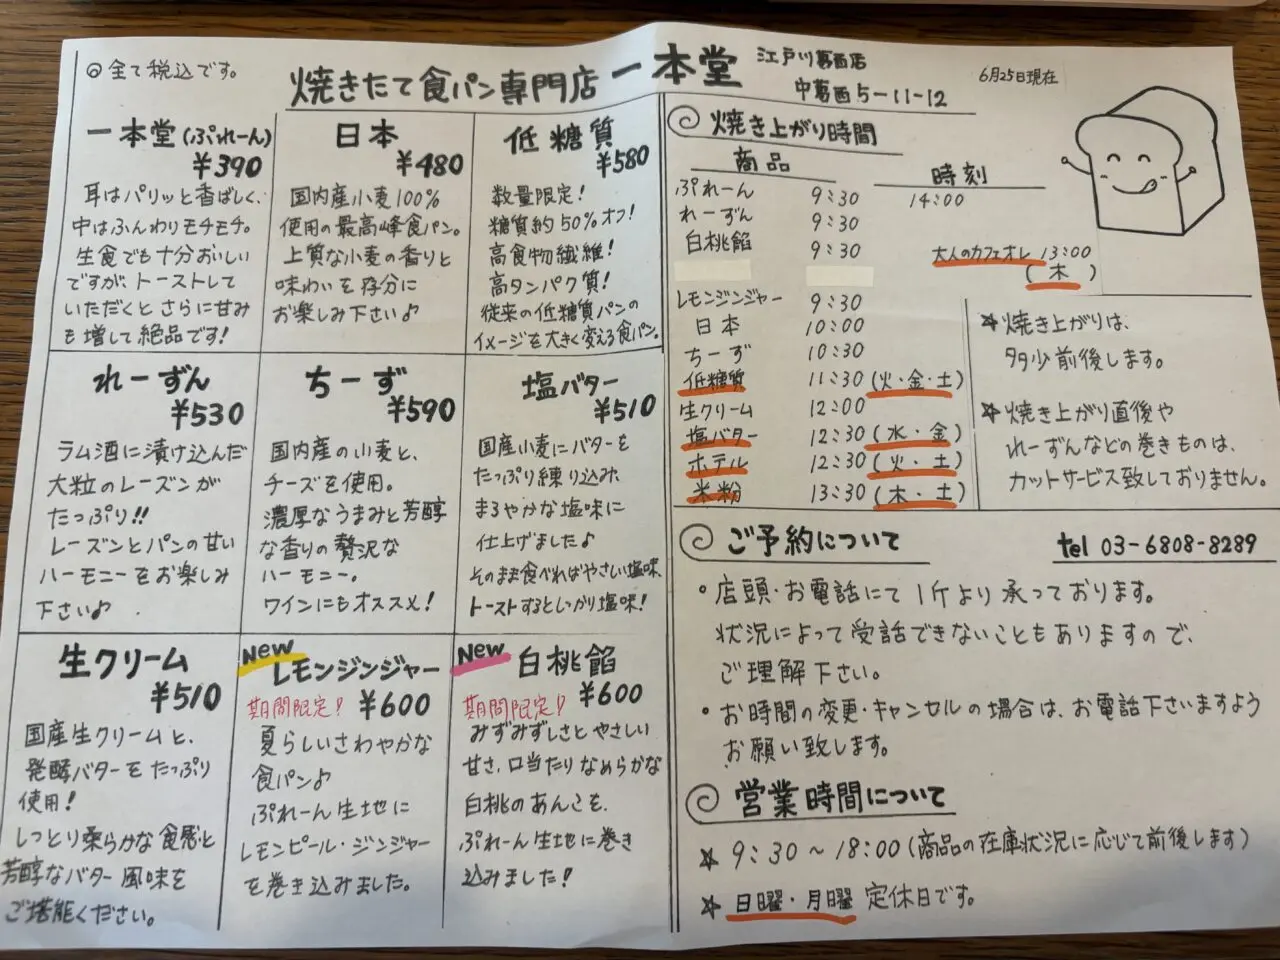 ◎全て税込です。
焼きたて食パン専門店 一本堂 江戸川葛西店
中葛西5-11-12
6月25日現在
一本堂(ぷれーん)
¥390
耳はパリッと香ばしく、
中はふんわりモチモチ。
生食でも十分おいしい
ですが、トーストして
いただくとさらに甘み
も増して絶品です!
日本
¥480
国内産小麦100%
使用の最高峰食パン。
上質な小麦の香りと
味わいを存分に
お楽しみ下さい♪
低糖質
¥580
数量限定!
糖質約50%オフ!
高食物繊維!
高タンパク質!
従来の低糖質パンの
イメージを大きく変える食パン。
れーずん
¥530
ラム酒に漬け込んだ
大粒のレーズンが
たっぷり!!
レーズンとパンの甘い
ハーモニーをお楽しみ
下さい♪
ちーず
¥590
国内産の小麦と、
チーズを使用。
濃厚なうまみと芳醇
な香りの贅沢な
ハーモニー。
ワインにもオススメ!
塩バター
¥510
国産小麦にバターを
たっぷり練り込み、
まろやかな塩味に
仕上げました♪
そのまま食べればやさしい塩味、
トーストするとしっかり塩味!
生クリーム
¥510
国産生クリームと、
発酵バターをたっぷり
使用!
しっとり柔らかな食感と
芳醇なバター風味を
ご堪能ください。
New
レモンジンジャー
期間限定! ¥600
夏らしいさわやかな
食パン♪
ぷれーん生地に
レモンピール・ジンジャー
を巻き込みました。
New
白桃餡
期間限定! ¥600
みずみずしさとやさしい
甘さ、口当たりなめらかな
白桃のあんこを、
ぷれーん生地に巻き
込みました!
焼き上がり時間
商品 時刻
ぷれーん 9:30 14:00
れーずん 9:30
白桃餡 9:30 大人のカフェオレ 13:00
(木)
レモンジンジャー 9:30
日本 10:00
ちーず 10:30
低糖質 11:30(火・金・土)
生クリーム 12:00
塩バター 12:30(水・金)
ホテル 12:30(火・土)
米粉 13:30(木・土)
☆焼き上がりは、
多少前後します。
☆焼き上がり直後や
れーずんなどの巻きものは、
カットサービス致しておりません。
ご予約について tel 03-6808-8289
・店頭・お電話にて1斤より承っております。
状況によって受話できないこともありますので、
ご理解下さい。
・お時間の変更・キャンセルの場合は、お電話下さいますよう
お願い致します。
営業時間について
☆9:30～18:00(商品の在庫状況に応じて前後します)
☆日曜・月曜 定休日です。